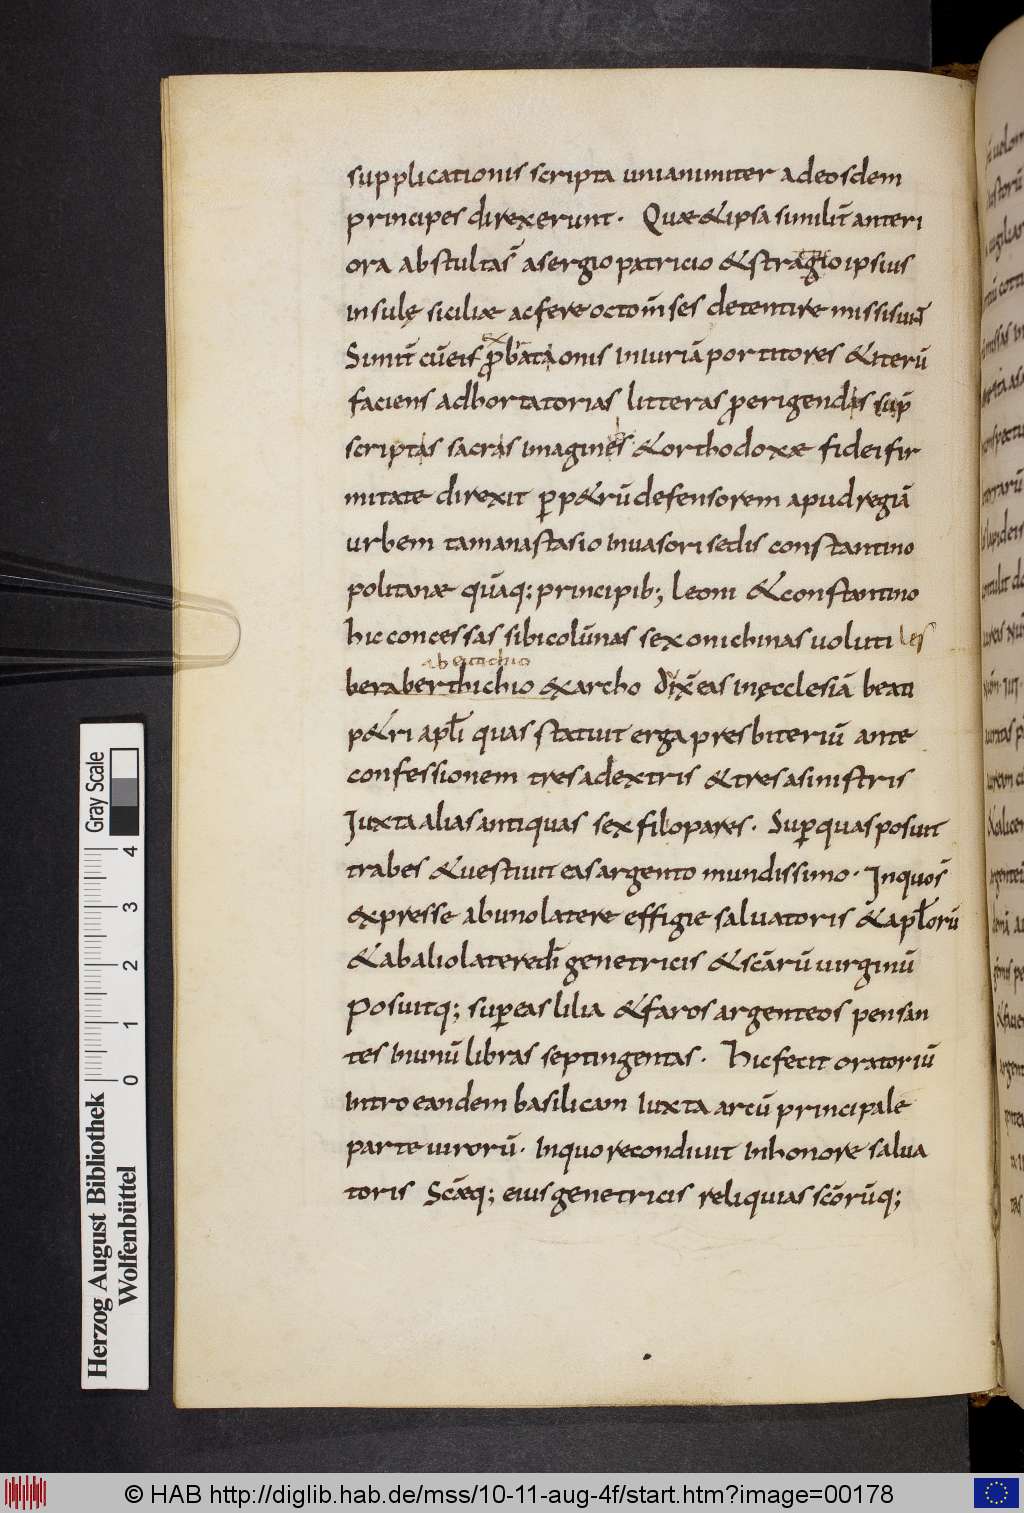 supplicationis scripta unianimiter adeosdem
principes direxerunt · Quae &ipsa similit̄ anteri
ora abstultas̄ asergio patricio &stragio ipsius
insulę siciliae acfere octom̄ses detentire missisunt̄
Simit̄ cūeis p̱robata onis iniuriā portitores &iterū
faciens adhortatorias litteras p̱roerigendas sup̄
scriptas sacras imagines &orthodoxae fidei fir
mitate direxit p̱ p&rū defensorem apud regiā
urbem tamanastasio inuasori sedis constantino
politanae quāq; principib; leoni &constantino
hic concessas sibi colūnas sex onichinas uoluti les
abeutichio
beraberthichio &archo dix̄ eas inęcclesiā beati
p&ri apl̄i quas statuit erga presbiteriū ante
confessionem tres adextris &tres asinistris
Iuxta alias antiquas sex filopares · Sup̱ quas posuit
trabes &uestiuit eas argento mundissimo · Inquos̄
expresse abuno latere effigie saluatoris &apl̄orū
&abalio latere dī genetricis &scārū uirginū
Posuitq; sup̱ eas lilia &faros argenteos pensan
tes inunū libras septingentas · Hicfecit oratoriū
Intro eandem basilicam Iuxta arcū principale
parte uirorū · Inquo recondiuit inhonore salua
toris Scāeq; eius genetricis reliquias scōrūq;
Gray Scale
4
3
2
1
0
Herzog August Bibliothek
Wolfenbüttel
© HAB http://diglib.hab.de/mss/10-11-aug-4f/start.htm?image=00178